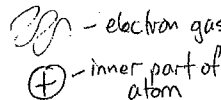 - electron gas
+ - inner part of
atom